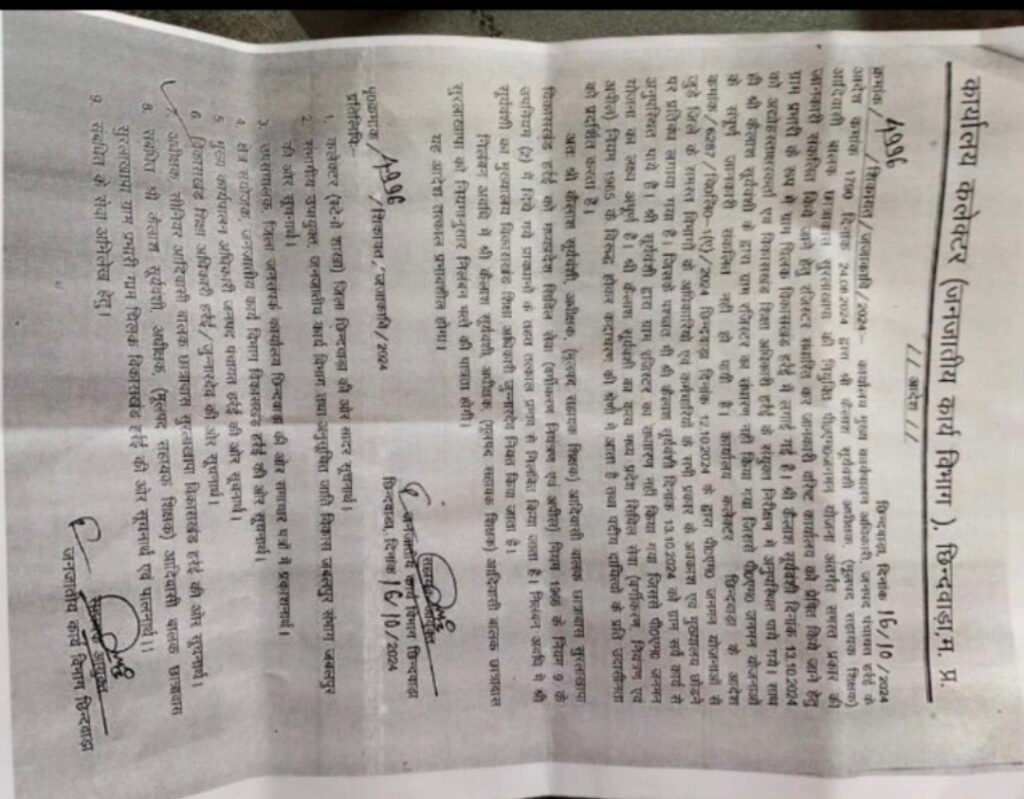 कार्यालय कलेक्टर (जनजातीय कार्य विभाग), छिन्दवाड़ा,म. प्र.
/ / / आदेश / / /
छिन्दवाड़ा, दिनांक 16/10/2024
क्रमांक/4096/शिकायत/जजाकावि/2024– कार्यालय मुख्य कार्यपालन अधिकारी, जनपद पंचायत हर्रई के
आदेश क्रमांक 1790 दिनांक 24.09.2024 द्वारा श्री कैलाश सूर्यवंशी अधीक्षक, (मूलपद सहायक शिक्षक)
आदिवासी बालक छात्रावास सुरलाखापा की नियुक्ति पी०एम०जनमन योजना अंतर्गत समस्त प्रकार की
जानकारी संकलित किये जाने हेतु रजिस्टर संधारित कर जानकारी वरिष्ट कार्यालय को प्रेषित किये जाने हेतु
ग्राम प्रभारी के रूप में ग्राम विकासखंड हर्रई में लगाई गई है। श्री कैलाश सूर्यवंशी दिनांक 13.10.2024
को अधोहस्ताक्षरकर्ता एवं विकासखंड शिक्षा अधिकारी हर्रई के संयुक्त निरीक्षण में अनुपस्थित पाये गये। साथ
ही श्री कैलाश सूर्यवंशी के द्वारा ग्राम रजिस्टर का संधारण नहीं किया गया जिससे पी०एम० जनमन योजनाओं
के संपूर्ण जानकारी संकलित नहीं हो पायी है। कार्यालय कलेक्टर छिन्दवाड़ा के आदेश
क्रमांक/6287/वि०लि०-1(ए)/2024 छिन्दवाड़ा दिनांक 12.10.2024 के द्वारा पी०एम० जनमन योजनाओं से
जुड़े जिले के समस्त विभागों के अधिकारियों एवं कर्मचारियों के सभी प्रकार के अवकाश एवं मुख्यालय छोड़ने
पर प्रतिबंध लगाया गया है। जिसके पश्चात भी श्री कैलाश सूर्यवंशी दिनांक 13.10.2024 को ग्राम सर्वे कार्य से
अनुपस्थित पाये है। श्री सूर्यवंशी द्वारा ग्राम रजिस्टर का संधारण नहीं किया गया जिससे पी०एम० जनमन
योजना का लक्ष्य अपूर्ण है। श्री कैलाश सूर्यवंशी का कृत्य मध्य प्रदेश सिविल सेवा (वर्गीकरण, नियंत्रण एवं
अपील) नियम 1965 के विरूद्ध होकर कदाचरण की श्रेणी में आता है तथा पदीय दायित्वों के प्रति उदासीनता
को प्रदर्शित करता है।
अतः श्री कैलाश सूर्यवंशी, अधीक्षक, (मूलपद सहायक शिक्षक) आदिवासी बालक छात्रावास सुरलाखापा
विकासखंड हर्रई को मध्यप्रदेश सिविल सेवा (वर्गीकरण नियंत्रण एवं अपील) नियम 1966 के नियम 9 के
उपनियम (2) में दिये गये प्रावधानों के तहत तत्काल प्रभाव से निलंबित किया जाता है। निलंबन अवधि में श्री
सूर्यवंशी का मुख्यालय विकासखंड शिक्षा अधिकारी जुन्नारदेव नियत किया जाता है।
निलंबन अवधि में श्री कैलाश सूर्यवंशी, अधीक्षक, (मूलपद सहायक शिक्षक) आदिवासी बालक छात्रावास
सुरलाखापा को नियमानुसार निलंबन भत्ते की पात्रता होगी।
यह आदेश तत्काल प्रभावशील होगा।
सहायक आयुक्त
जनजातीय कार्य विभाग छिन्दवाड़ा
पृ०क्रमांक/4096/शिकायत/जजाकावि/2024
छिन्दवाड़ा, दिनांक 16/10/2024
प्रतिलिपि:-
1. कलेक्टर (स्टे.नो शाखा) जिला छिन्दवाड़ा की ओर सादर सूचनार्थ।
2. संभागीय उपायुक्त, जनजातीय कार्य विभाग तथा अनुसूचित जाति विकास जबलपुर संभाग जबलपुर
की ओर सूचनार्थ।
3. उपसंचालक, जिला जनसंपर्क कार्यालय छिन्दवाड़ा की ओर समाचार पत्रों में प्रकाशनार्थ।
4. क्षेत्र संयोजक, जनजातीय कार्य विभाग विकासखंड हर्रई की ओर सूचनार्थ।
5. मुख्य कार्यपालन अधिकारी जनपद पंचायत हर्रई की ओर सूचनार्थ।
6. विकासखंड शिक्षा अधिकारी हर्रई/जुन्नारदेव की ओर सूचनार्थ।
7. अधीक्षक, सीनियर आदिवासी बालक छात्रावास सुरलाखापा विकासखंड हर्रई की ओर सूचनार्थ।
8. संबंधित श्री कैलाश सूर्यवंशी, अधीक्षक, (मूलपद सहायक शिक्षक) आदिवासी बालक छात्रावास
सुरलाखापा ग्राम प्रभारी ग्राम विकासखंड हर्रई की ओर सूचनार्थ एवं पालनार्थ।।
9. संबंधित के सेवा अभिलेख हेतु।
सहायक आयुक्त
जनजातीय कार्य विभाग छिन्दवाड़ा